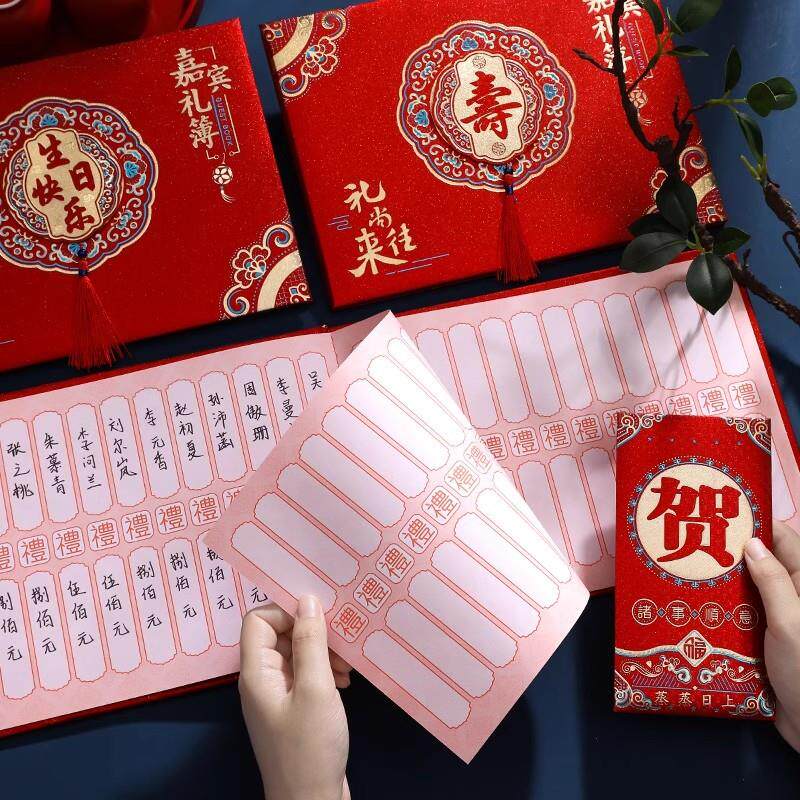 生日
快乐
「宾
嘉礼簿」
GUEST BOOK
寿
「宾
嘉礼簿」
GUEST BOOK
礼尚
往来
张之桃
朱慕青
李问兰
刘尔岚
李元香
赵初夏
孙沛菡
周傲珊
李曼
吴
禮禮禮禮禮禮禮
捌佰元
捌佰元
伍佰元
伍佰元
捌佰元
捌佰元
禮禮禮禮禮禮禮禮
禮禮禮禮禮禮禮禮
贺
諸事順意
福
蒸蒸日上